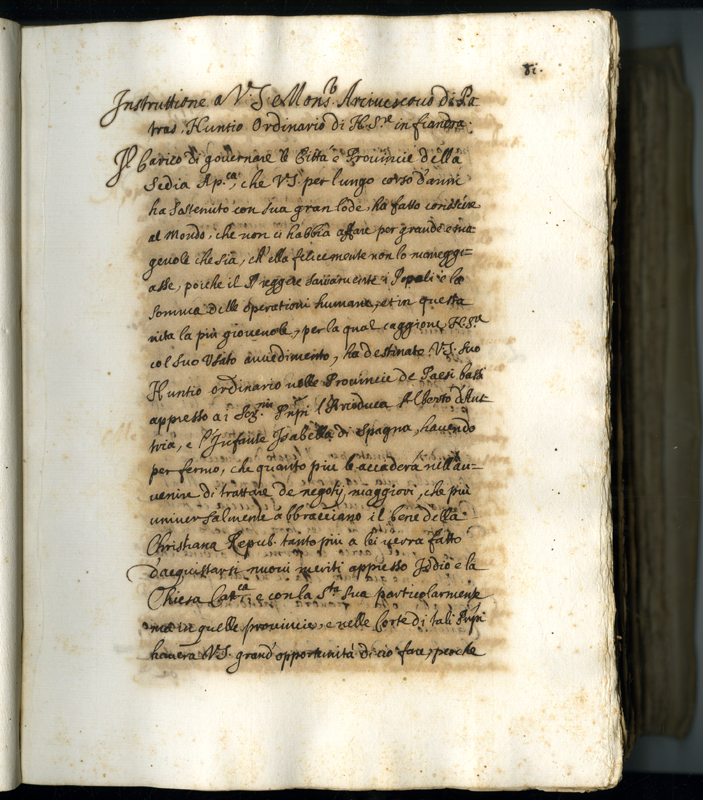 81.
Instruttione a V S e Mons.r Arciuescouo di Pa
tras Nuntio Ordinario di N. S.re in fiandra.
Il Carico di gouernare le Città e Prouincie della
Sedia Ap.ca, che V.S. per lungo corso d'anni
ha sostenuto con sua gran lode, ha fatto conoscere
al Mondo, che non ci habbia affare per grande e ma
geuole che sia, ch'ella felicemente non lo maneggi=
asse, poiche il Reggere i Popoli è la
somma delle operationi humane, et in questa
nita la più gioueuole, per la qual caggione, N. S.re
col suo Usato auuedimento, ha destinato V.S. suo
Nuntio ordinario nelle Prouincie de Paesi bassi
appresso ai Ser.mi Prñpi l'Arciduca Alberto d'Aus
tria, e l'Infante Isabella di Spagna, hauendo
per fermo, che quanto piu le accaderà nell'au=
uenire di trattare de negotij maggiori, che più
uniuersalmente abbracciano il bene della
Christiana Repub. tanto più a lei uerra fatto
d'acquistarsi nuoui meriti appresso Iddio e la
Chiesa Catt.ca, e con la S.ta Sua particolarmente
ma in quelle prouincie, e nelle Corte di tali Prñpi
hauera V.S. grand'opportunità di cio fare, perche